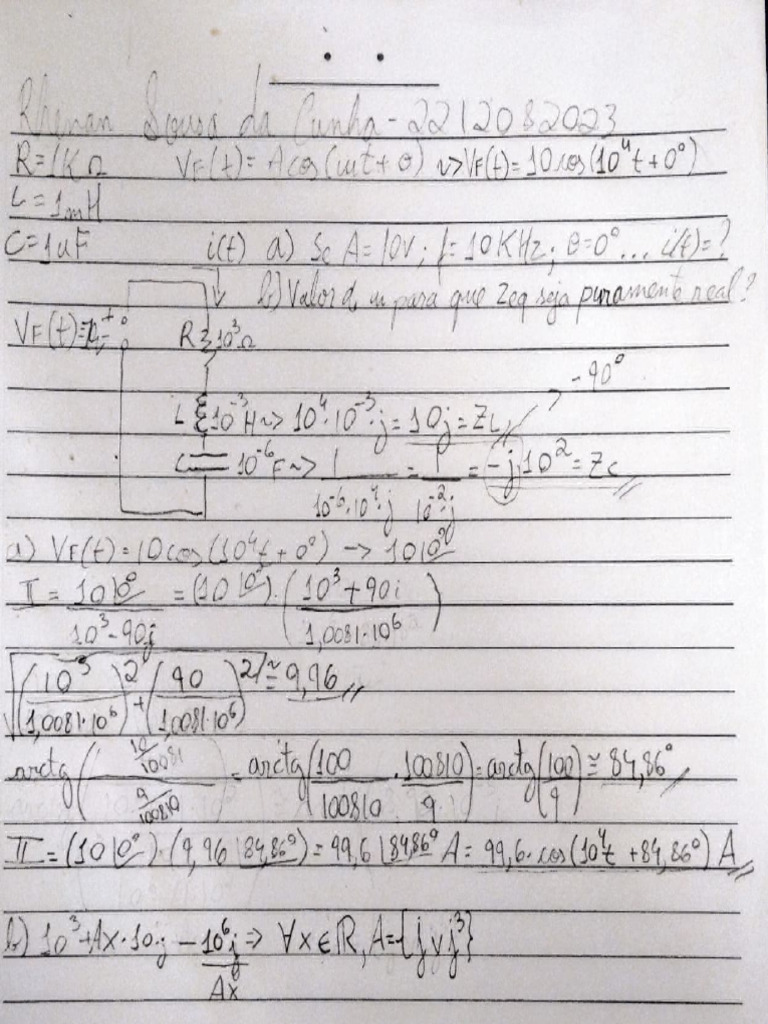 Rhenan Sousa da Cunha - 2212082023
R=1KΩ VF(t)=Acos(wt+θ) ~> VF(t)=10cos(10⁴t+0°)
L=1mH
C=1uF i(t) a) Se A=10v; f=10KHz; θ=0°... i(t)=?
b) Valor d w para que Zeq seja puramente real?
VF(t)= + - R 10³Ω
-90°
L 10⁻³H ~> 10⁴·10⁻³·j=10j=ZL
C 10⁻⁶F ~> 1/(10⁻⁶·10⁴·j) = 1/(10⁻²·j) = -j10²=Zc
a) VF(t)=10cos(10⁴t+0°) -> 10∠0°
I = 10∠0°/(10³-90j) = (10∠0°)·((10³+90i)/(1,0081·10⁶))
√((10³/(1,0081·10⁶))²+(90/(1,0081·10⁶))²) ≅ 9,96
arctg((10/10081)/(9/100810)) = arctg(100/100810 · 100810/9) = arctg(100/9) ≅ 84,86°
II = (10∠0°)·(9,96∠84,86°) = 99,6∠84,86° A = 99,6·cos(10⁴t+84,86°) A
b) 10³+Ax·10j - 10⁶j/Ax => ∀x∈ℝ, A={j v j³}